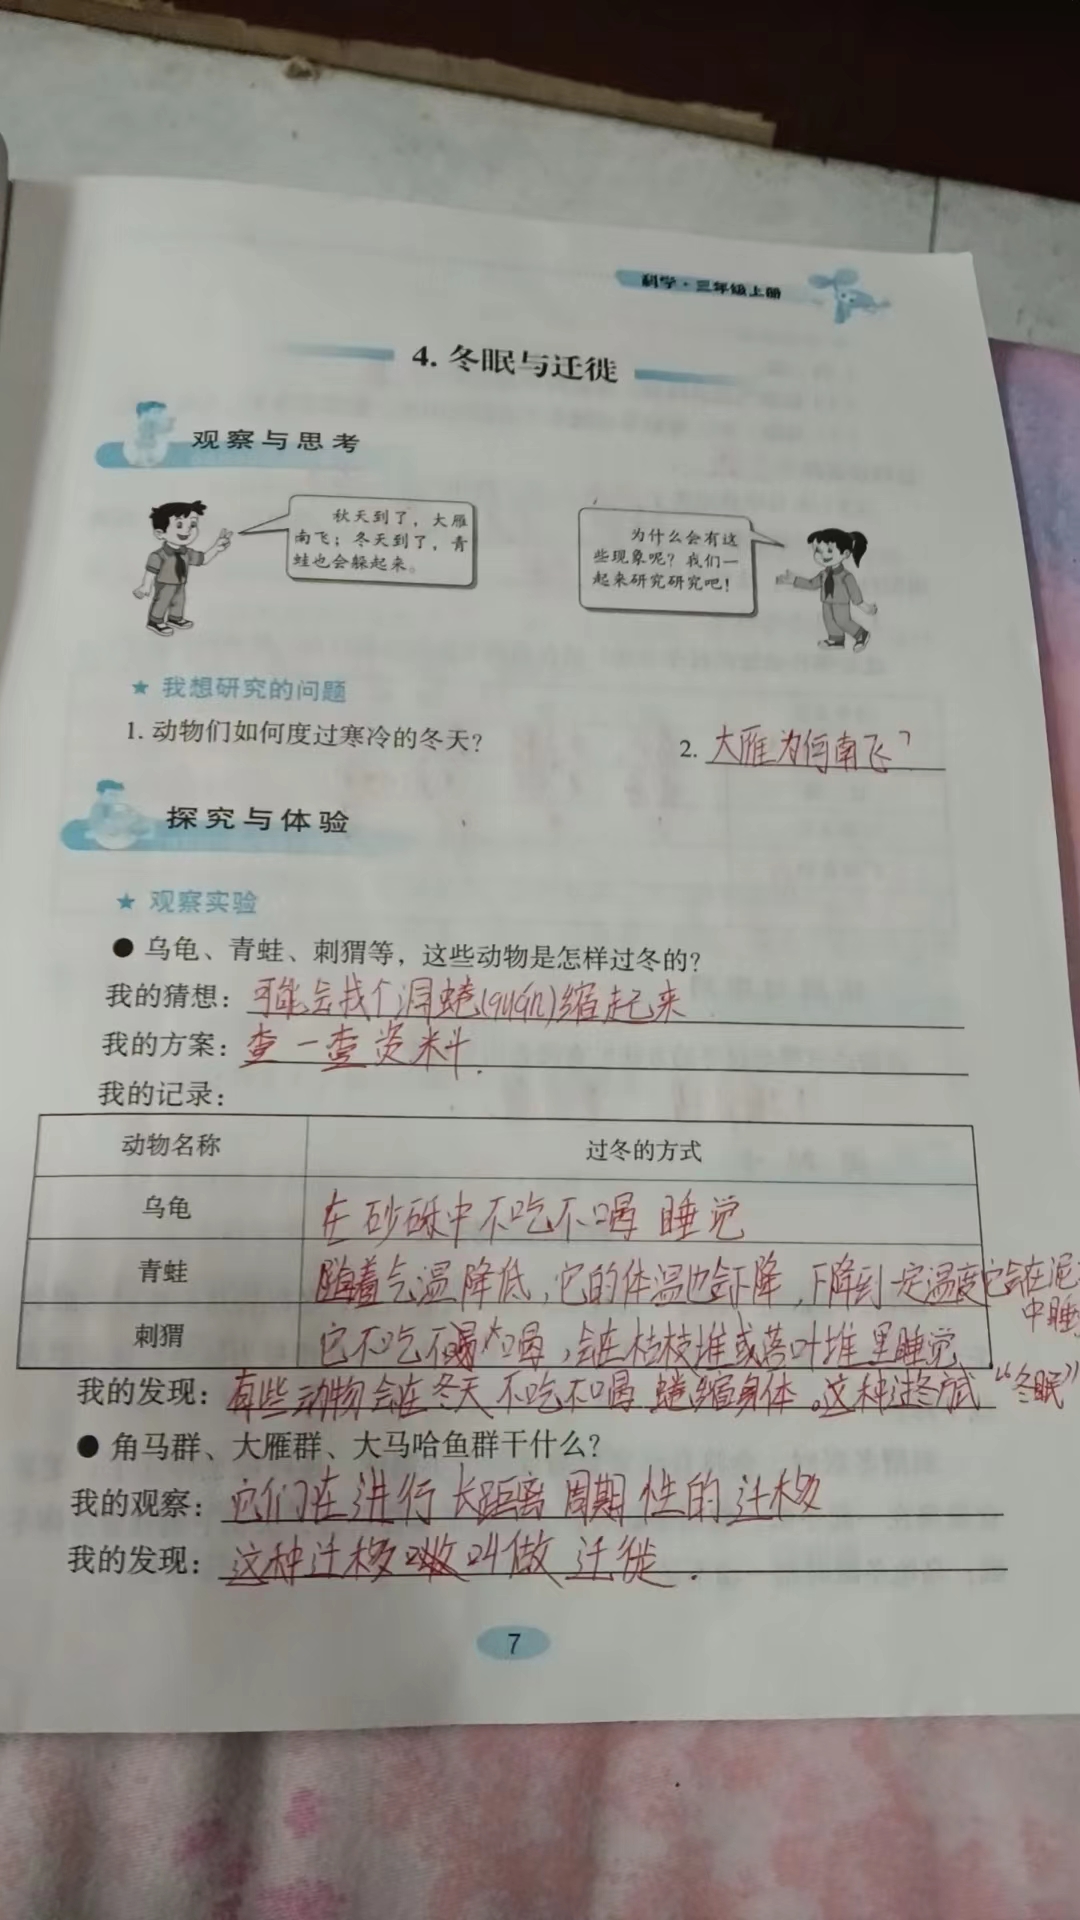 科学·三年级上册
4. 冬眠与迁徙
观察与思考
秋天到了，大雁
南飞；冬天到了，青
蛙也会躲起来。
为什么会有这
些现象呢？我们一
起来研究研究吧！
★ 我想研究的问题
1. 动物们如何度过寒冷的冬天？
2. 大雁为何南飞？
探究与体验
★ 观察实验
● 乌龟、青蛙、刺猬等，这些动物是怎样过冬的？
我的猜想：可能会找个洞蜷(quán)缩起来
我的方案：查一查资料.
我的记录：
动物名称 过冬的方式
乌龟 在砂砾中不吃不喝睡觉
青蛙 随着气温降低，它的体温也会下降，下降到一定温度它会在泥
中睡
刺猬 它不吃不喝，会在枯枝堆或落叶堆里睡觉
我的发现：有些动物会在冬天不吃不喝蜷缩身体。这种过冬方式“冬眠”
● 角马群、大雁群、大马哈鱼群干什么？
我的观察：它们在进行长距离周期性的迁移
我的发现：这种迁移叫做迁徙.
7